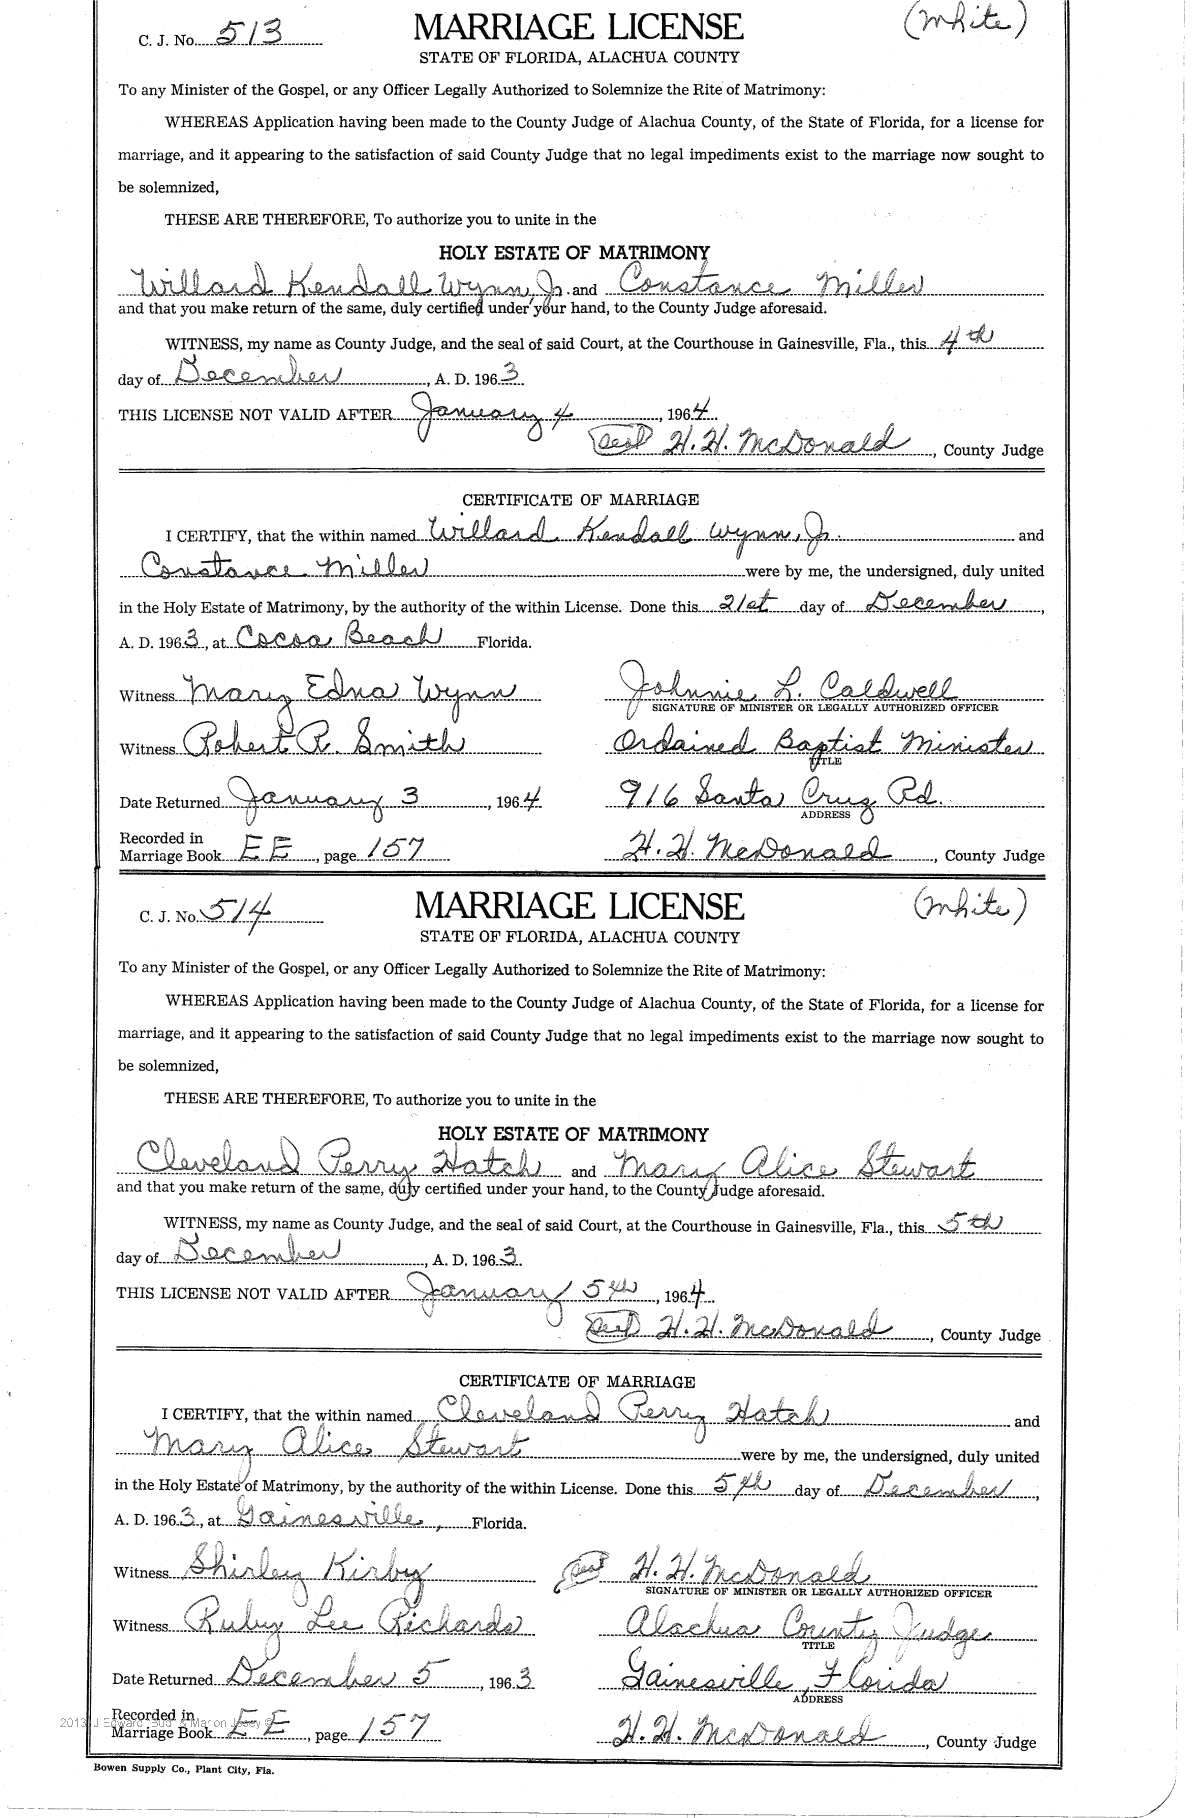 C. J. No. 513
MARRIAGE LICENSE
(White)
STATE OF FLORIDA, ALACHUA COUNTY
To any Minister of the Gospel, or any Officer Legally Authorized to Solemnize the Rite of Matrimony:
WHEREAS Application having been made to the County Judge of Alachua County, of the State of Florida, for a license for
marriage, and it appearing to the satisfaction of said County Judge that no legal impediments exist to the marriage now sought to
be solemnized,
THESE ARE THEREFORE, To authorize you to unite in the
HOLY ESTATE OF MATRIMONY
Willard Kendall Wynn, Jr. and Constance Miller
and that you make return of the same, duly certified under your hand, to the County Judge aforesaid.
WITNESS, my name as County Judge, and the seal of said Court, at the Courthouse in Gainesville, Fla., this 4th
day of December, A. D. 1963
THIS LICENSE NOT VALID AFTER January 4, 1964
Seal H. H. McDonald, County Judge
CERTIFICATE OF MARRIAGE
I CERTIFY, that the within named Willard Kendall Wynn, Jr. and
Constance Miller were by me, the undersigned, duly united
in the Holy Estate of Matrimony, by the authority of the within License. Done this 21st day of December,
A. D. 1963, at Cocoa Beach Florida.
Witness Mary Edna Wynn Johnnie L. Caldwell
SIGNATURE OF MINISTER OR LEGALLY AUTHORIZED OFFICER
Witness Robert R. Smith Ordained Baptist Minister
TITLE
Date Returned January 3, 1964 916 Santa Cruz Rd.
ADDRESS
Recorded in
Marriage Book EE, page 157 H. H. McDonald, County Judge
C. J. No. 514
MARRIAGE LICENSE
(White)
STATE OF FLORIDA, ALACHUA COUNTY
To any Minister of the Gospel, or any Officer Legally Authorized to Solemnize the Rite of Matrimony:
WHEREAS Application having been made to the County Judge of Alachua County, of the State of Florida, for a license for
marriage, and it appearing to the satisfaction of said County Judge that no legal impediments exist to the marriage now sought to
be solemnized,
THESE ARE THEREFORE, To authorize you to unite in the
HOLY ESTATE OF MATRIMONY
Cleveland Perry Hatch and Mary Alice Stewart
and that you make return of the same, duly certified under your hand, to the County Judge aforesaid.
WITNESS, my name as County Judge, and the seal of said Court, at the Courthouse in Gainesville, Fla., this 5th
day of December, A. D. 1963
THIS LICENSE NOT VALID AFTER January 5th, 1964
Seal H. H. McDonald, County Judge
CERTIFICATE OF MARRIAGE
I CERTIFY, that the within named Cleveland Perry Hatch and
Mary Alice Stewart were by me, the undersigned, duly united
in the Holy Estate of Matrimony, by the authority of the within License. Done this 5th day of December,
A. D. 1963, at Gainesville, Florida.
Witness Shirley Kirby Seal H. H. McDonald
SIGNATURE OF MINISTER OR LEGALLY AUTHORIZED OFFICER
Witness Ruby Lee Richards Alachua County Judge
TITLE
Date Returned December 5, 1963 Gainesville, Florida
ADDRESS
Recorded in
Marriage Book EE, page 157 H. H. McDonald, County Judge
Bowen Supply Co., Plant City, Fla.